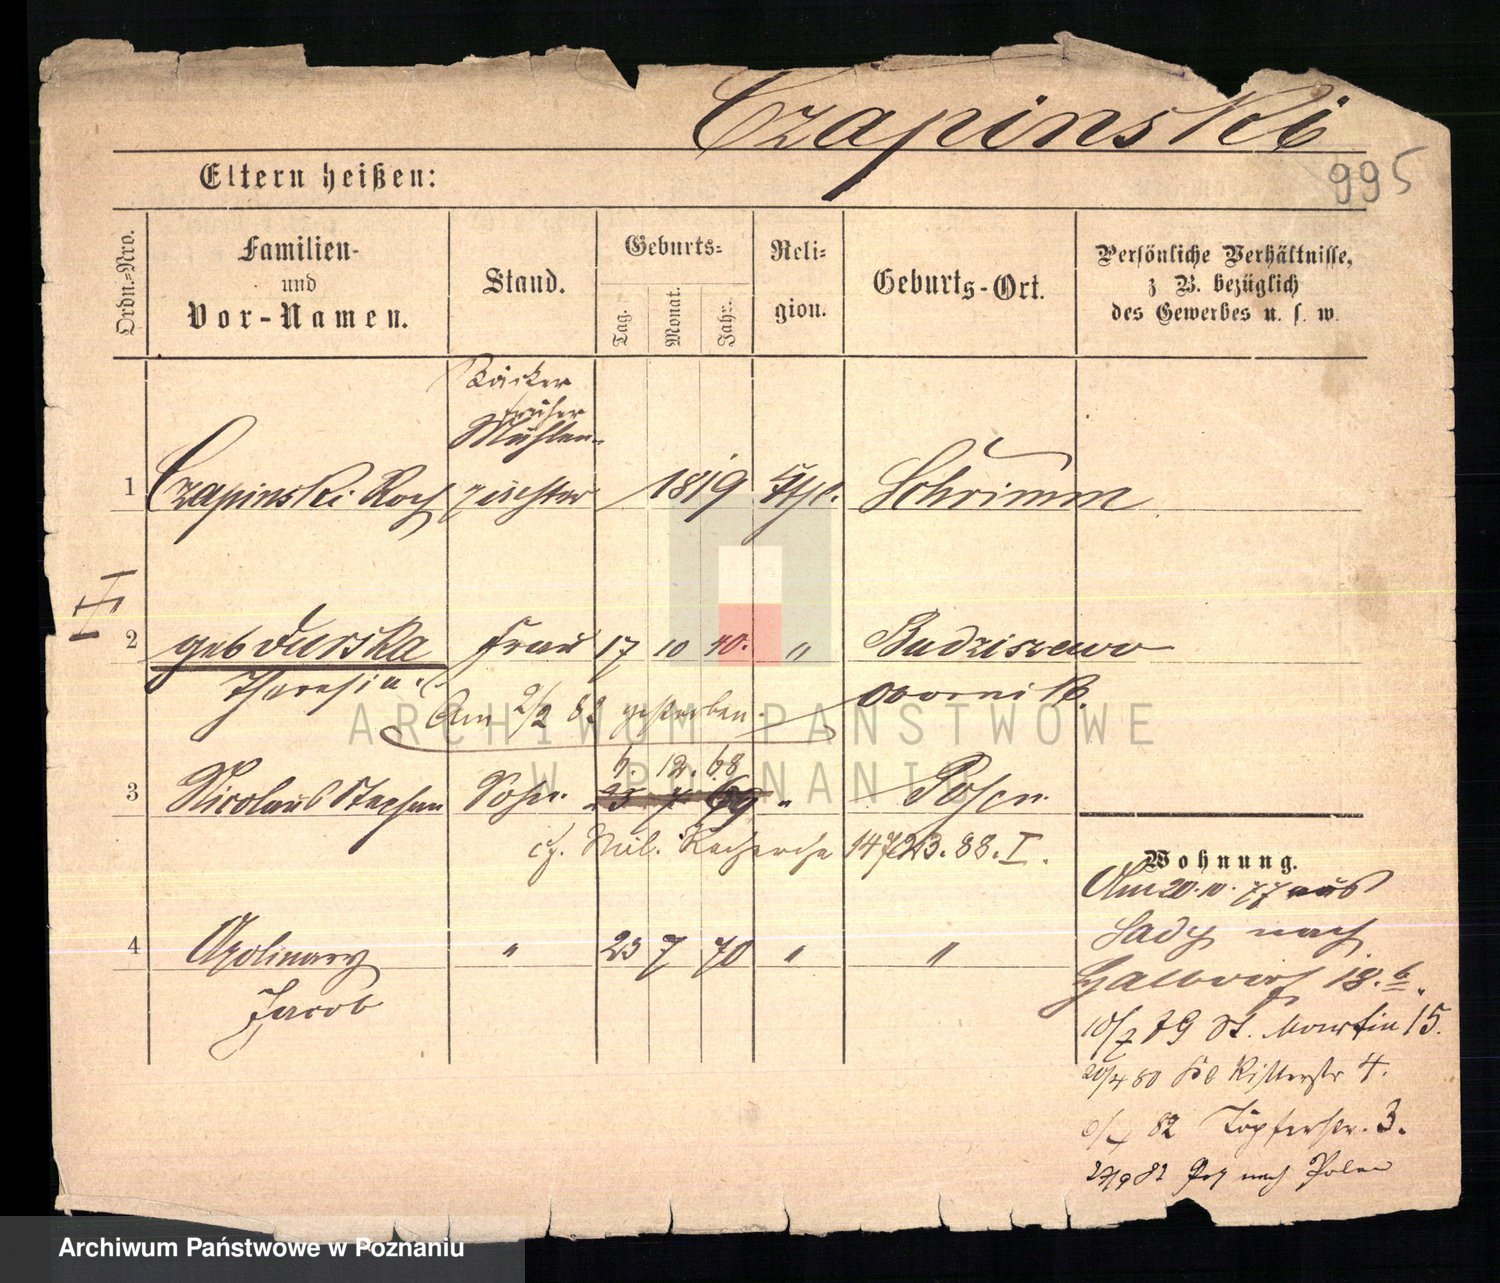 Czapinski
995
Eltern heißen:
Ordn.-Nro.
Familien-
und
Vor-Namen.
Stand.
Geburts-
Tag.
Monat.
Jahr.
Reli-
gion.
Geburts-Ort.
Persönliche Verhältnisse,
z B. bezüglich
des Gewerbes u. s. w.
Bäcker
früher
Mühlen-
1 Czapinski Roch 1819 Schrimm
II
2 geb Turska Frau 17 10 40. " Budziszewo
Theresia Obornik.
Am 2/2 82 gestorben.
6. 12. 68
3 Nicolaus Stephan Sohn. 25 7 69 " Posen.
cf. Mil. Recherche 14723.88.I.
Wohnung.
Am 20.10.77 aus
4 Apolinary " 23 7 70 " "
Jacob
nach
Halbdorf 18.b.
10/7 79 St. Martin 15.
20/4 80 Kl Ritterstr 4.
82 Töpferstr. 3.
27/9 82 nach Polen
ARCHIWUM PAŃSTWOWE
W POZNANIU
Archiwum Państwowe w Poznaniu